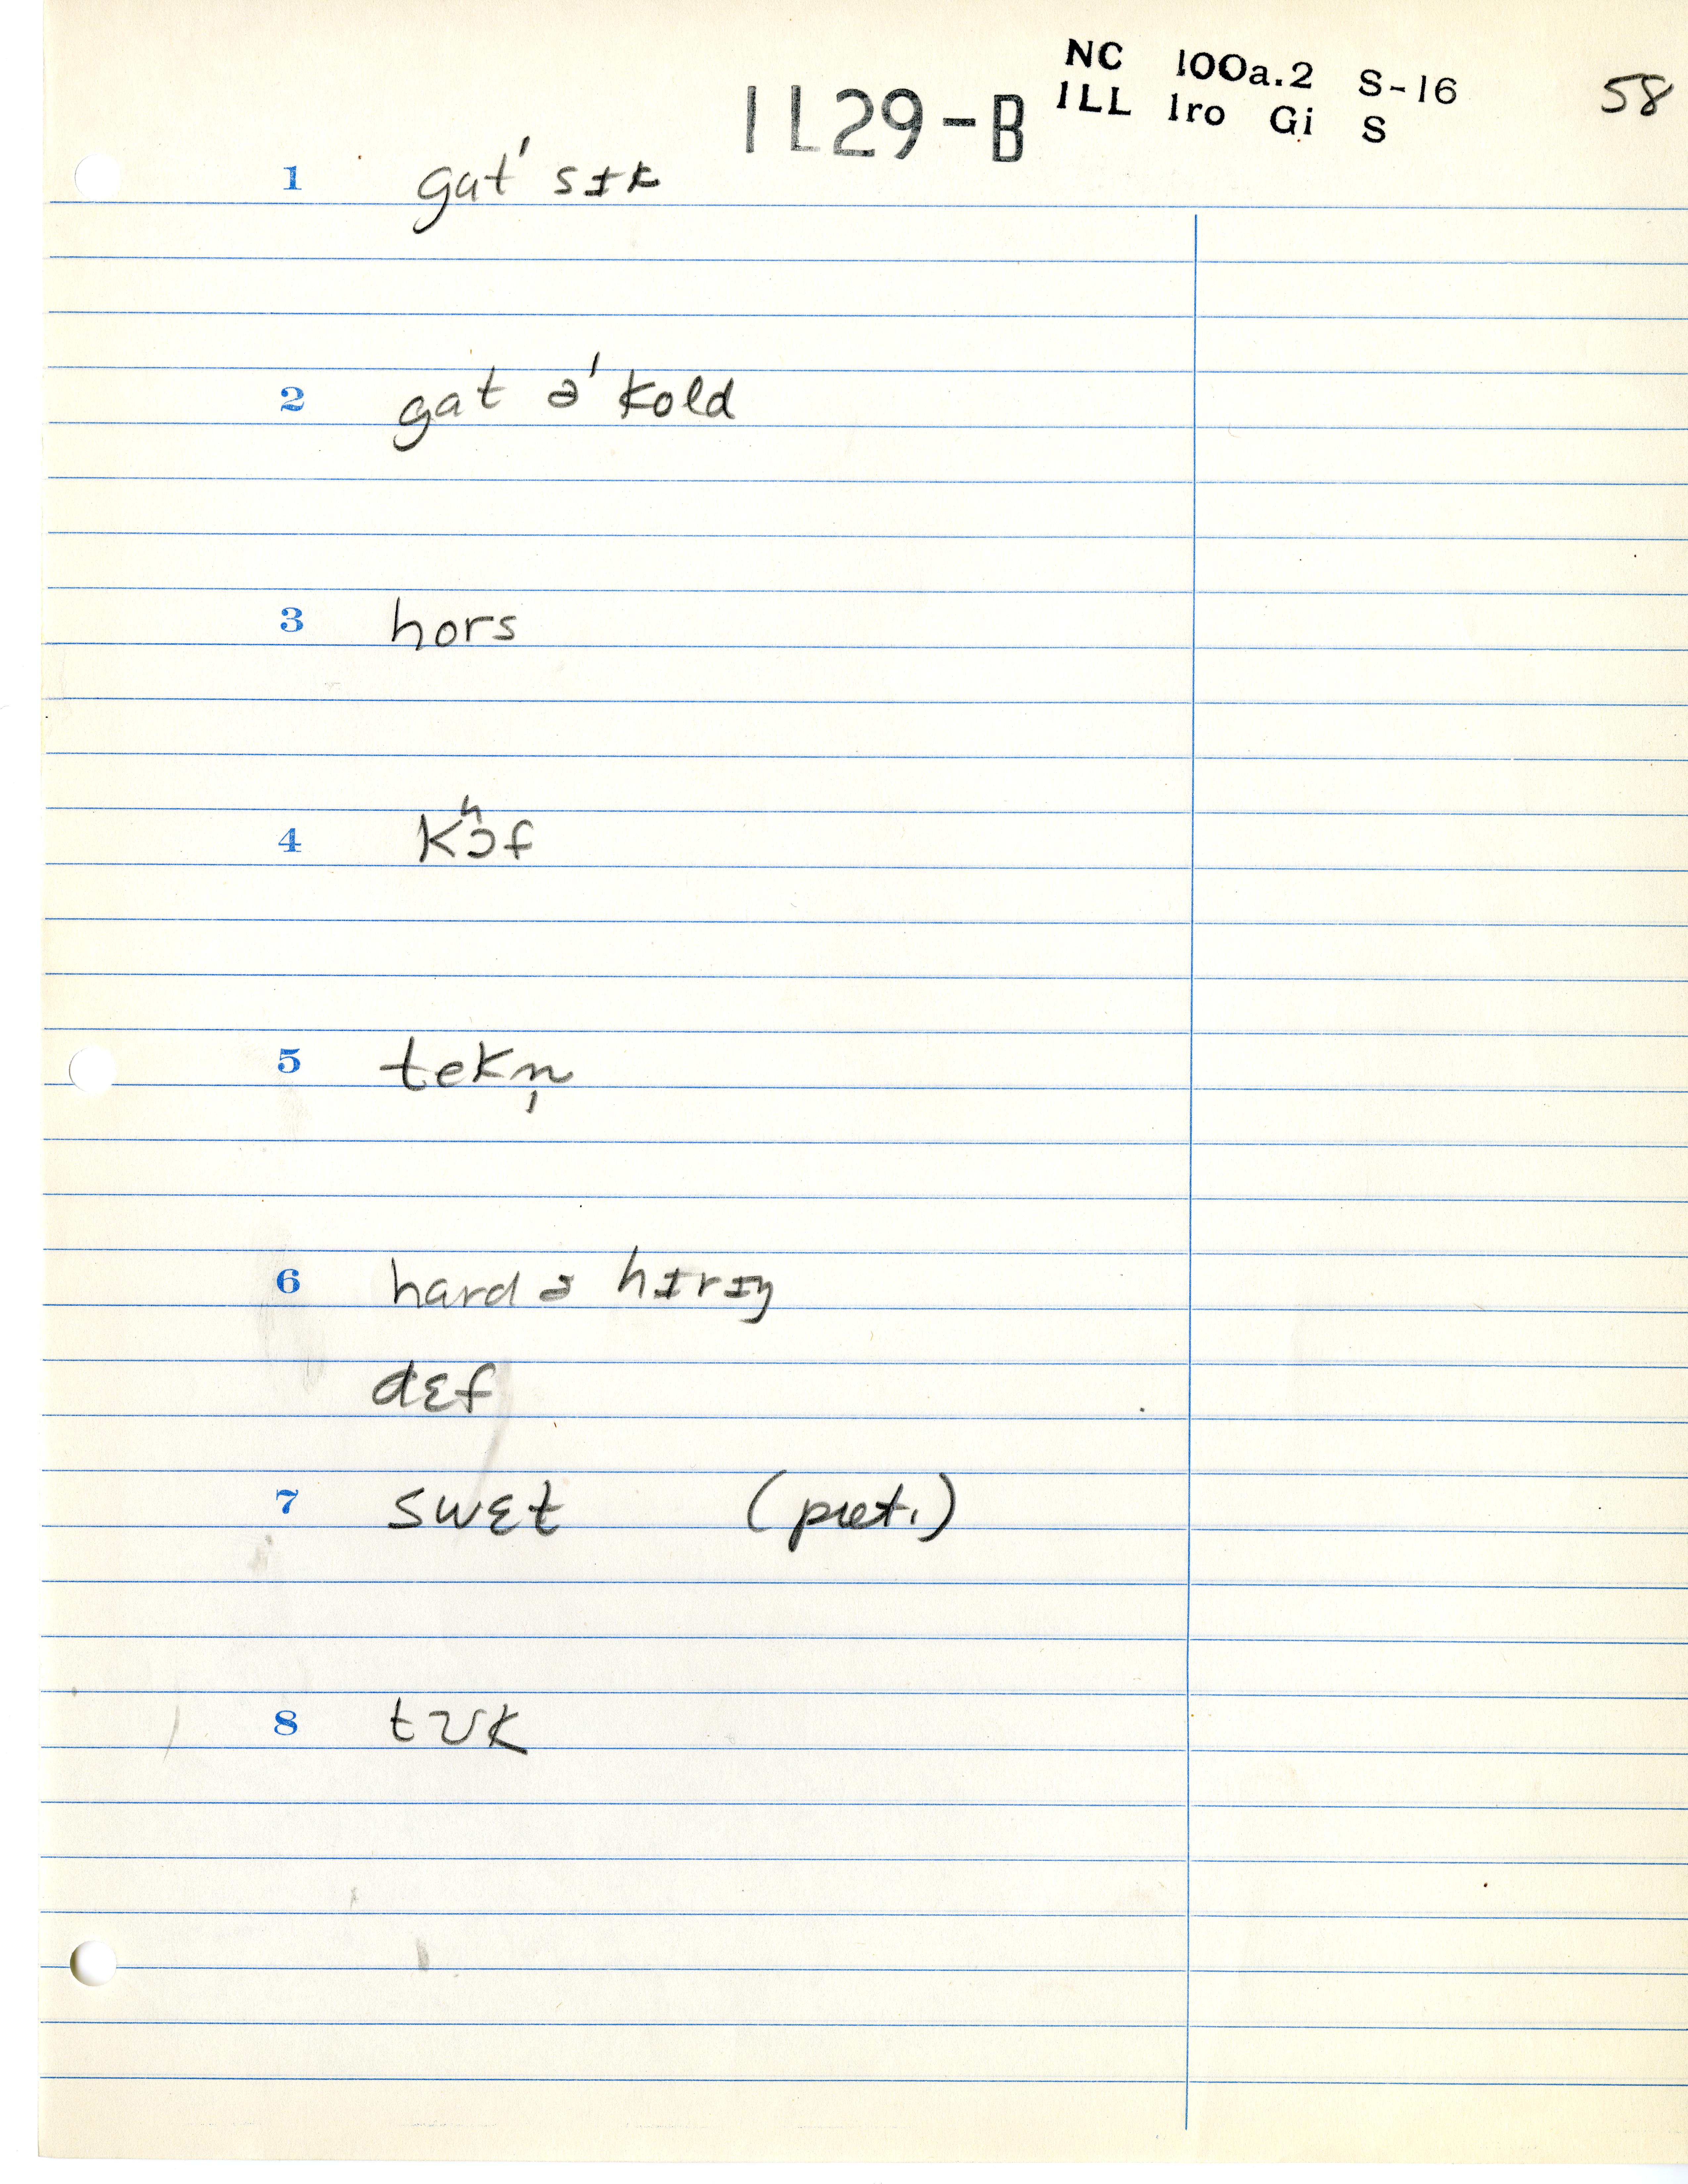 NC 100a.2 S-16
ILL Iro Gi S
1L29-B
58
1 gat ˈsɪk
2 gat ə ˈkold
3 hors
4 kʰɔf
5 tekn̩
6 hard ə hɪrɪŋ
dɛf
7 swɛt (pret.)
8 tʊk